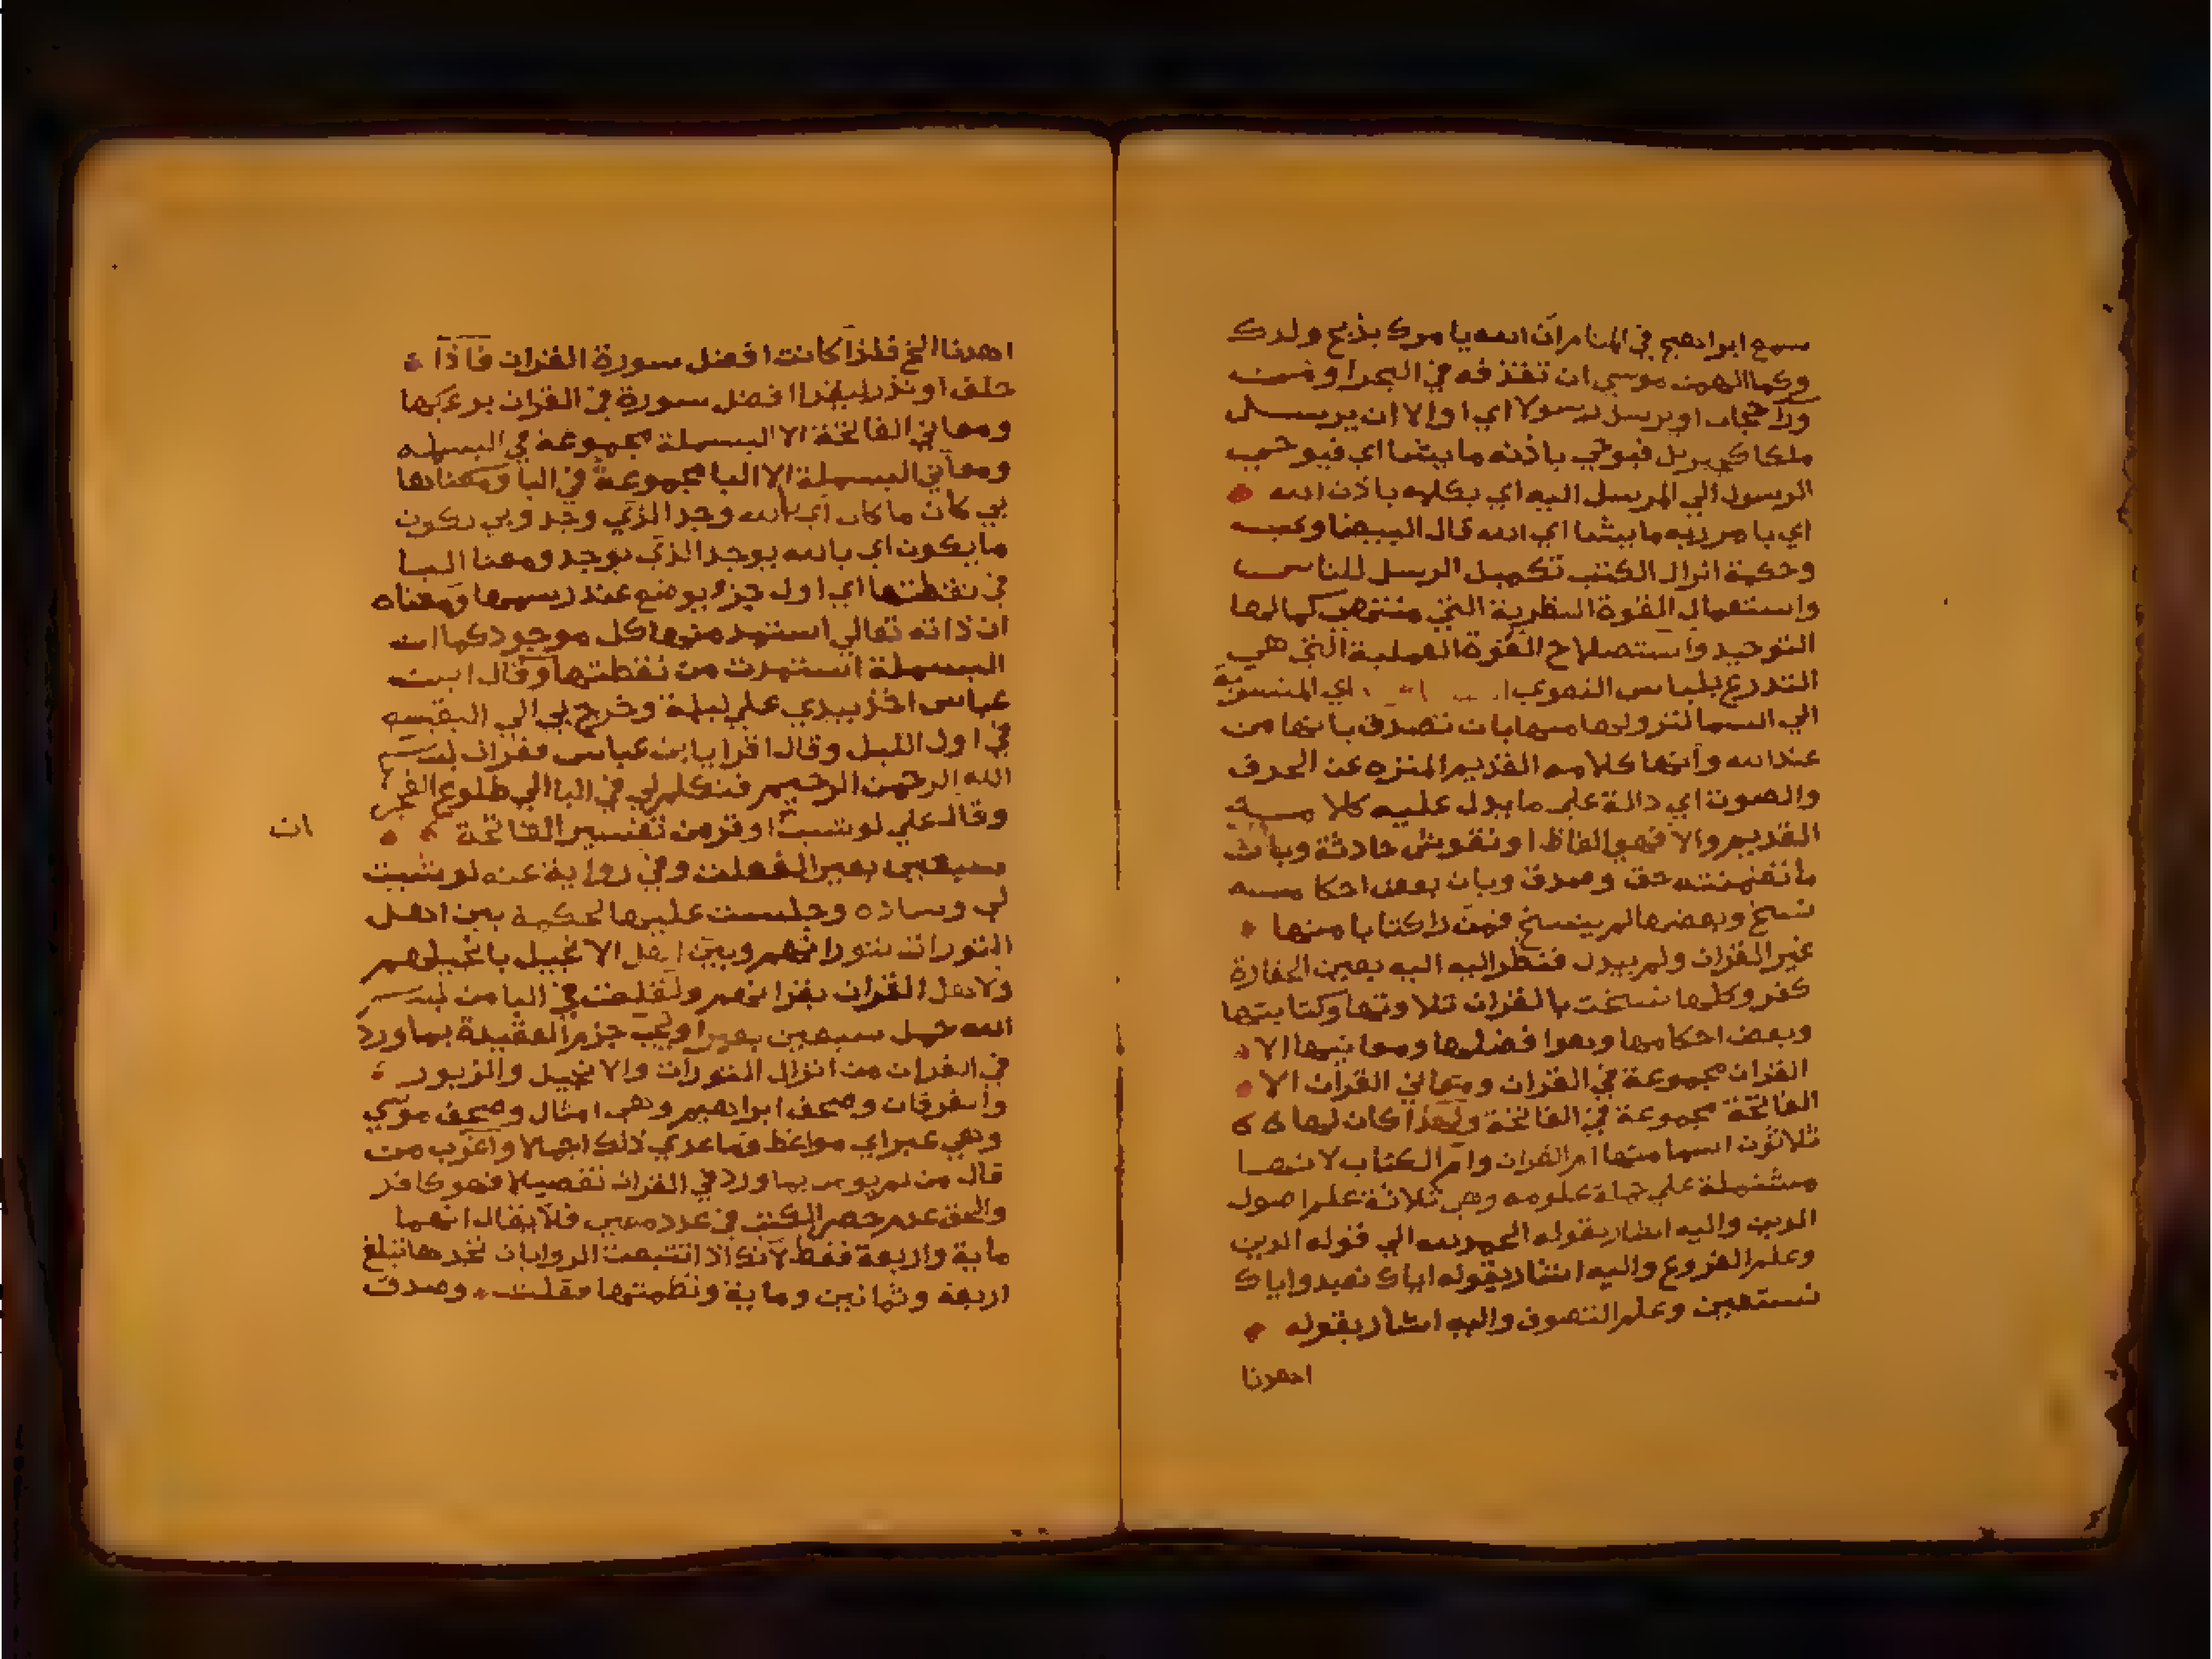 سمع ابراهيم في المنام ان الله يامرك بذبح ولدك
وكما الهمت موسي ان تقذفه في البحر او من
وراء حجاب او يرسل رسولا اي او الا ان يرسل
ملكا كجبريل فيوحي باذنه ما يشا اي فيوحي
الرسول الي المرسل اليه اي يكلمه باذن الله
اي بامر ربه ما يشا اي الله قال البيضاوي
وحكمة انزال الكتب تكميل الرسل للناس
واستعمال القوة النظرية التي منتهي كمالها
التوحيد واستصلاح القوة العملية التي هي
التدرع بلباس التقوي اي المنسوبة
الي السما لنزولها منها بان تصدق بانها من
عند الله وانها كلامه القديم المنزه عن الحرف
والصوت اي دالة علي ما يدل عليه كلامه
القديم والا فهي الفاظ او نقوش حادثة وبان
ما تضمنته حق وصدق وبان بعض احكامه
نسخ وبعضها لم ينسخ فمن را كتابا منها
غير القران ولم يبدل فنظر اليه اليه بعين الحقارة
كفر وكلها نسخت بالقران تلاوتها وكتابتها
وبعض احكامها وهو افضلها ومعانيها الا
القران مجموعة في القران ومعاني القران الا
الفاتحة مجموعة في الفاتحة ولهذا كان لها
ثلاثون اسما منها ام القران وام الكتاب لانها
مشتملة علي جملة علومه وهي ثلاثة علم اصول
الدين واليه اشار بقوله الحمد لله الي قوله الدين
وعلم الفروع واليه اشار بقوله اياك نعبد واياك
نستعين وعلم التصوف واليه اشار بقوله
اهدنا
اهدنا الخ فلذا كانت افضل سورة القران فاذا
حلف او نذر ليقرا افضل سورة في القران بر بها
ومعاني الفاتحة الا البسملة مجموعة في البسمله
ومعاني البسملة الا البا مجموعة في البا ومعناها
بي كان ما كان اي بالله وجد الذي وجد وبي يكون
ما يكون اي بالله يوجد الذي يوجد ومعنا البا
في نقطتها اي اول جزء يوضع عند رسمها ومعناه
ان ذاته تعالي استمد منها كل موجود كما ان
البسملة استمدت من نقطتها وقال ابن
عباس اخذ بيدي علي ليلة وخرج بي الي البقيع
في اول الليل وقال اقرا يا ابن عباس فقرات بسم
الله الرحمن الرحيم فتكلم لي في البا الي طلوع الفجر
وقال علي لو شيت اوقر من تفسير الفاتحة
ان
سبعين بعيرا لفعلت وفي رواية عنه لو شيت
لي وساده وجلست عليها لحكمت بين اهل
التورات بتوراتهم وبين اهل الانجيل بانجيلهم
ولاهل القران بقرانهم ولقلت في البا من بسم
الله حمل سبعين بعيرا ويجب جزم العقيدة بما ورد
في القران من انزال التورات والانجيل والزبور
والفرقان وصحف ابراهيم وهي امثال وصحف موسي
وهي عبر اي مواعظ وما عدي ذلك اجمالا واغرب من
قال من لم يومن بما ورد في القران تفصيلا فهو كافر
والحق عدم حصر الكتب في عدد معين فلا يقال انها
ماية واربعة فقط لانك اذا تتبعت الروايات تجدها تبلغ
اربعة وثمانين وماية ونظمتها فقلت وصدق